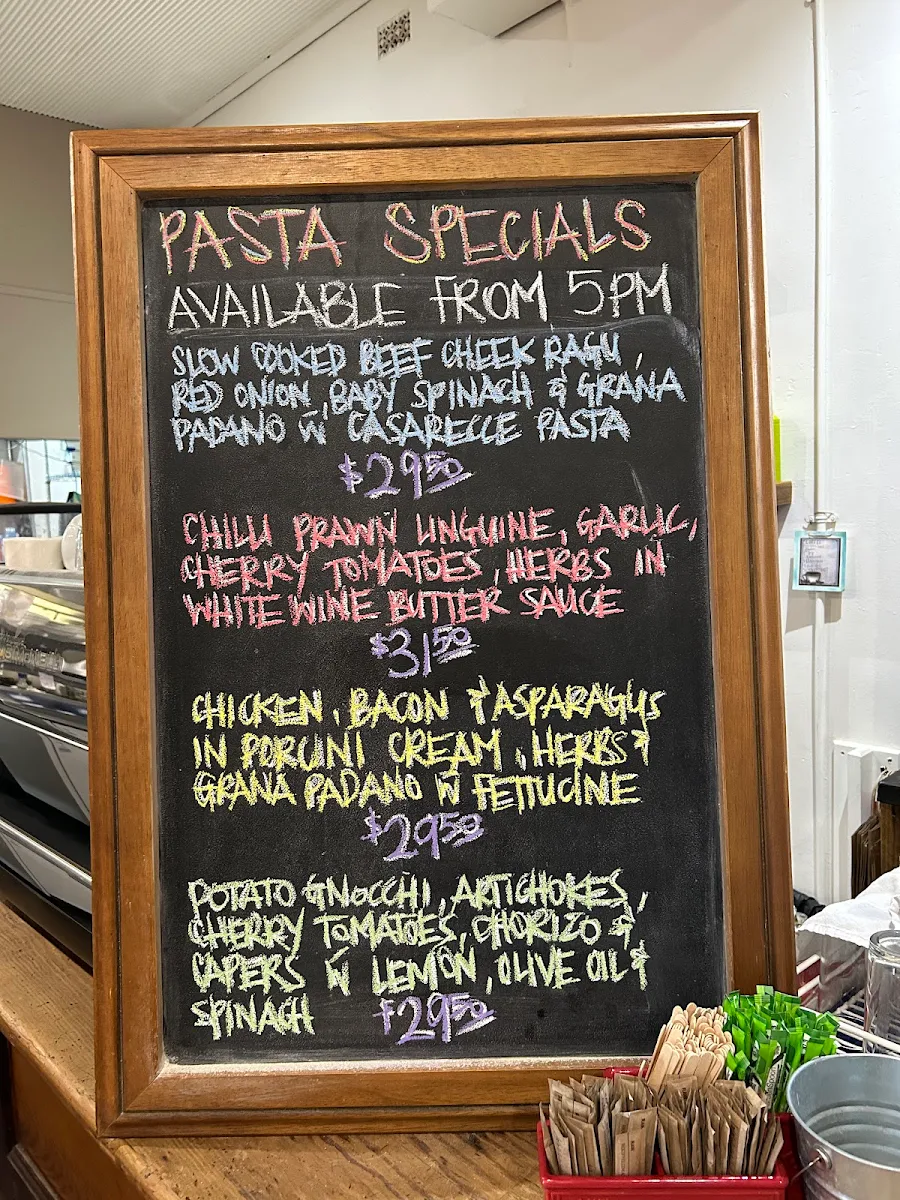 PASTA SPECIALS
AVAILABLE FROM 5PM
SLOW COOKED BEEF CHEEK RAGU,
RED ONION, BABY SPINACH & GRANA
PADANO W CASARECCE PASTA
$29.50
CHILLI PRAWN LINGUINE, GARLIC,
CHERRY TOMATOES, HERBS IN
WHITE WINE BUTTER SAUCE
$31.50
CHICKEN, BACON & ASPARAGUS
IN PORCINI CREAM, HERBS &
GRANA PADANO W FETTUCINE
$29.50
POTATO GNOCCHI, ARTICHOKES,
CHERRY TOMATOES, CHORIZO &
CAPERS W LEMON, OLIVE OIL &
SPINACH $29.50